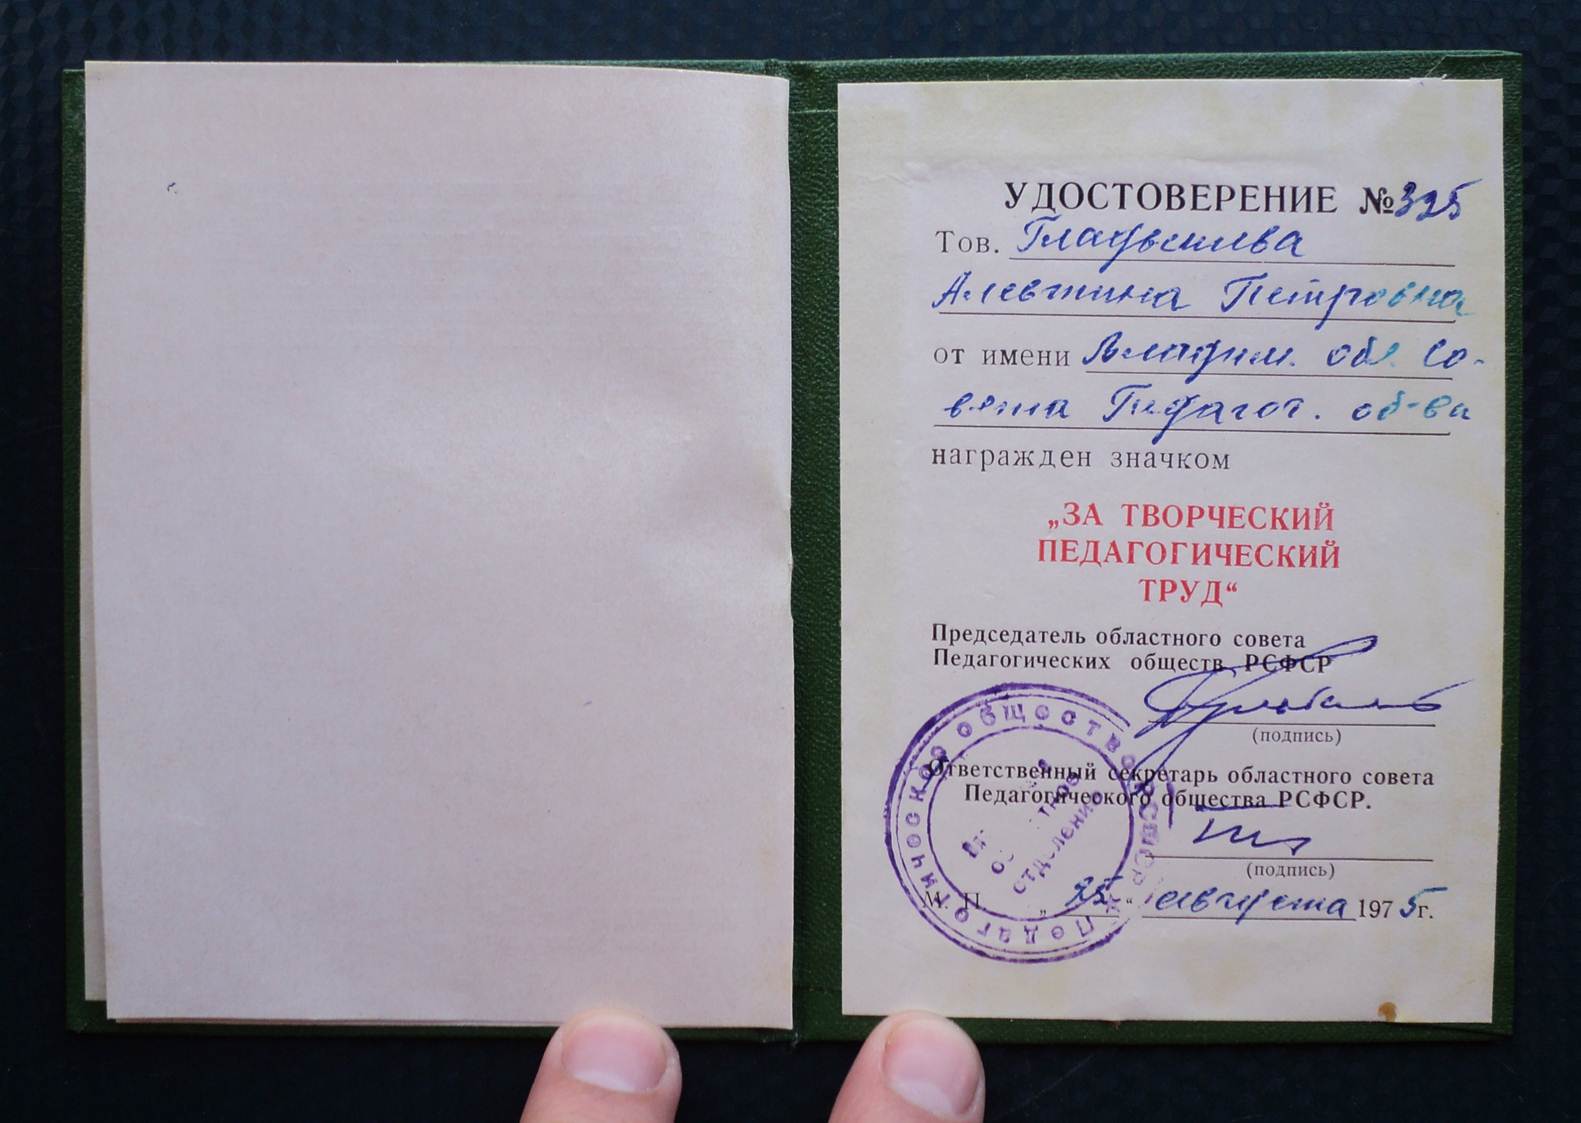 УДОСТОВЕРЕНИЕ №325
Тов.
Алевтина Петровна
от имени Владим. обл. Со-
вета Педагог. об-ва
награжден значком
„ЗА ТВОРЧЕСКИЙ
ПЕДАГОГИЧЕСКИЙ
ТРУД“
Председатель областного совета
Педагогических обществ РСФСР
(подпись)
Ответственный секретарь областного совета
Педагогического общества РСФСР.
(подпись)
М. П. „25“ августа 1975г.
Педагогическое общество РСФСР
отделение